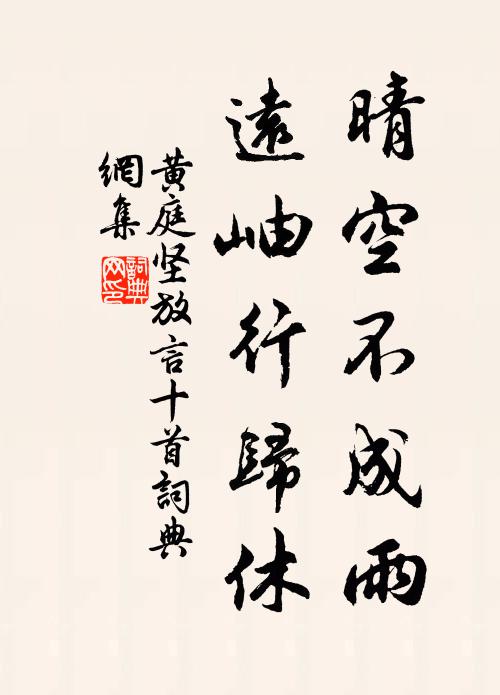 晴空不成雨
遠岫行歸休
黃庭坚放言十首詞典
網集
詞典
网印